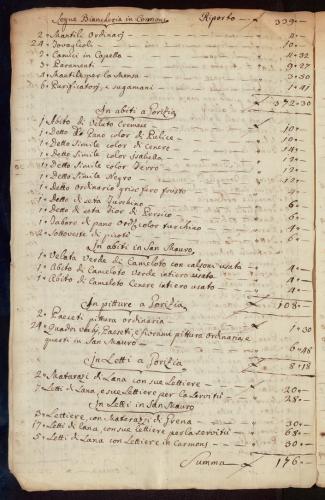 Segue Biancheria in Cormons Riporto 339 –
2 Mantili Ordinarj 4 –
24 Tovaglioli 10 –
2 Camici in Capella 4 – 32
3 Paramenti 9 – 27
4 Mantili per la Mensa 3 – 30
6 Purificatorj, e sugamani 1 – 41
372 – 30
In abiti a Gorizia
1 Abito di Veluto Cremese 10 –
1 Detto di Pano color di Pulice 10 –
1 Detto Simile color di Cenere 14 –
1 Detto Simile color Isabella 12 –
1 Detto Simile color Ferro 12 –
1 Detto Simile Negro 12 –
1 Detto Ordinario griso fero frusto 4 –
1 Detto di seta Turchino 6 –
1 Detto di seta Fior di Persico 6 –
1 Tabaro di pano color turchino 4 –
12 Sottoveste 6 –
In abiti in San Mauro
1 Velata Verde di Cameloto con calsoni usata 4 –
1 Abito di Cameloto Verde intiero usato 4 –
1 Abito di Cameloto Cenere intiero usato 4 –
108 –
In pitture a Gorizia
2 Paeseti pittura ordinaria 1 – 30
24 Quadri Paeseti, e fiorami pittura ordinaria, e
questi in San Mauro 6 – 48
8 – 18
In Letti a Gorizia
2 Matarazi di Lana con sue Lettiere 20 –
7 Letti di Lana, e sue Lettiere per la Servitù 28 –
In Letti in San Mauro
3 Lettiere, con Materazzi di 30 –
17 Letti di lana, con sue lettiere per la servitù 68 –
5 Letti di Lana con Lettiere in Cormons 30 –
Summa 176 –